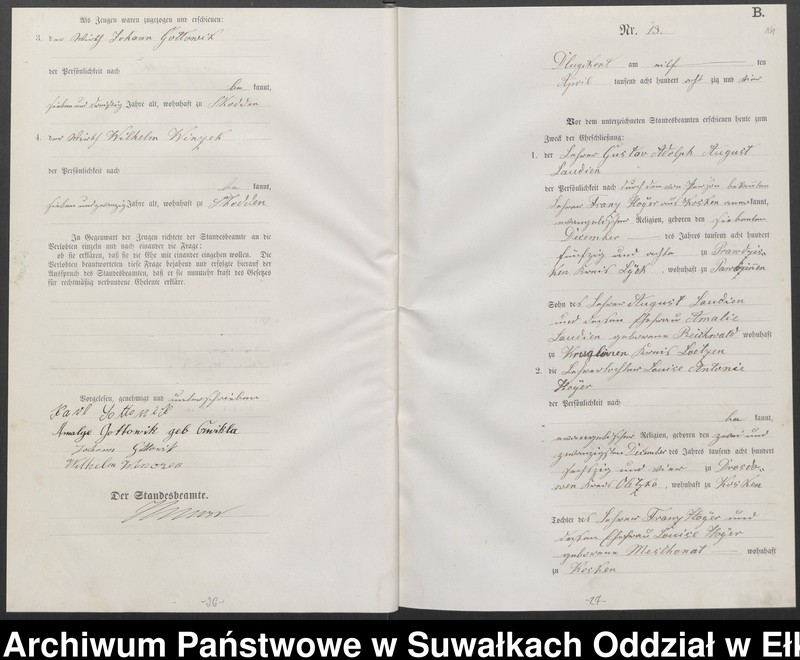 Als Zeugen waren zugezogen und erschienen:
3. der Wirth Johann Gottowik
der Persönlichkeit nach
be kannt,
sieben und Jahre alt, wohnhaft zu Skodden
4. der Wirth Wilhelm
der Persönlichkeit nach
be kannt,
sieben und zwanzig Jahre alt, wohnhaft zu Skodden
In Gegenwart der Zeugen richtete der Standesbeamte an die
Verlobten einzeln und nach einander die Frage:
ob sie erklären, daß sie die Ehe mit einander eingehen wollen. Die
Verlobten beantworteten diese Frage bejahend und erfolgte hierauf der
Ausspruch des Standesbeamten, daß er sie nunmehr kraft des Gesetzes
für rechtmäßig verbundene Eheleute erkläre.
Vorgelesen, genehmigt und unterschrieben
Karl Gottowik
Amalye Gottowik geb Cwikla
Johann Gottowik
Wilhelm
Der Standesbeamte.
-26-
B.
Nr. 13.
Dlugikont am elf ten
April tausend acht hundert acht zig und vier
Vor dem unterzeichneten Standesbeamten erschienen heute zum
Zweck der Eheschließung:
1. der Lehrer Gustav Adolph August
Laudien
der Persönlichkeit nach durch den von Person bekannten
Lehrer Franz Hoyer aus Kosken anerkannt,
evangelischer Religion, geboren den siebenten
December des Jahres tausend acht hundert
fünfzig und acht zu
Kreis Lyck, wohnhaft zu
Sohn des Lehrer August Laudien
und dessen Ehefrau Amalie
Laudien geborene Reichwald wohnhaft
zu Kruglinnen Kreis Loetzen
2. die Lehrertochter Louise Antonie
Hoyer
der Persönlichkeit nach
be kannt,
evangelischer Religion, geboren den zwei und
zwanzigsten December des Jahres tausend acht hundert
sechszig und vier zu Drosdo-
wen Kreis Oletzko, wohnhaft zu Kosken
Tochter des Lehrer Franz Hoyer und
dessen Ehefrau Louise Hoyer
geborene wohnhaft
zu Kosken
-27-
Archiwum Państwowe w Suwałkach Oddział w Ełk